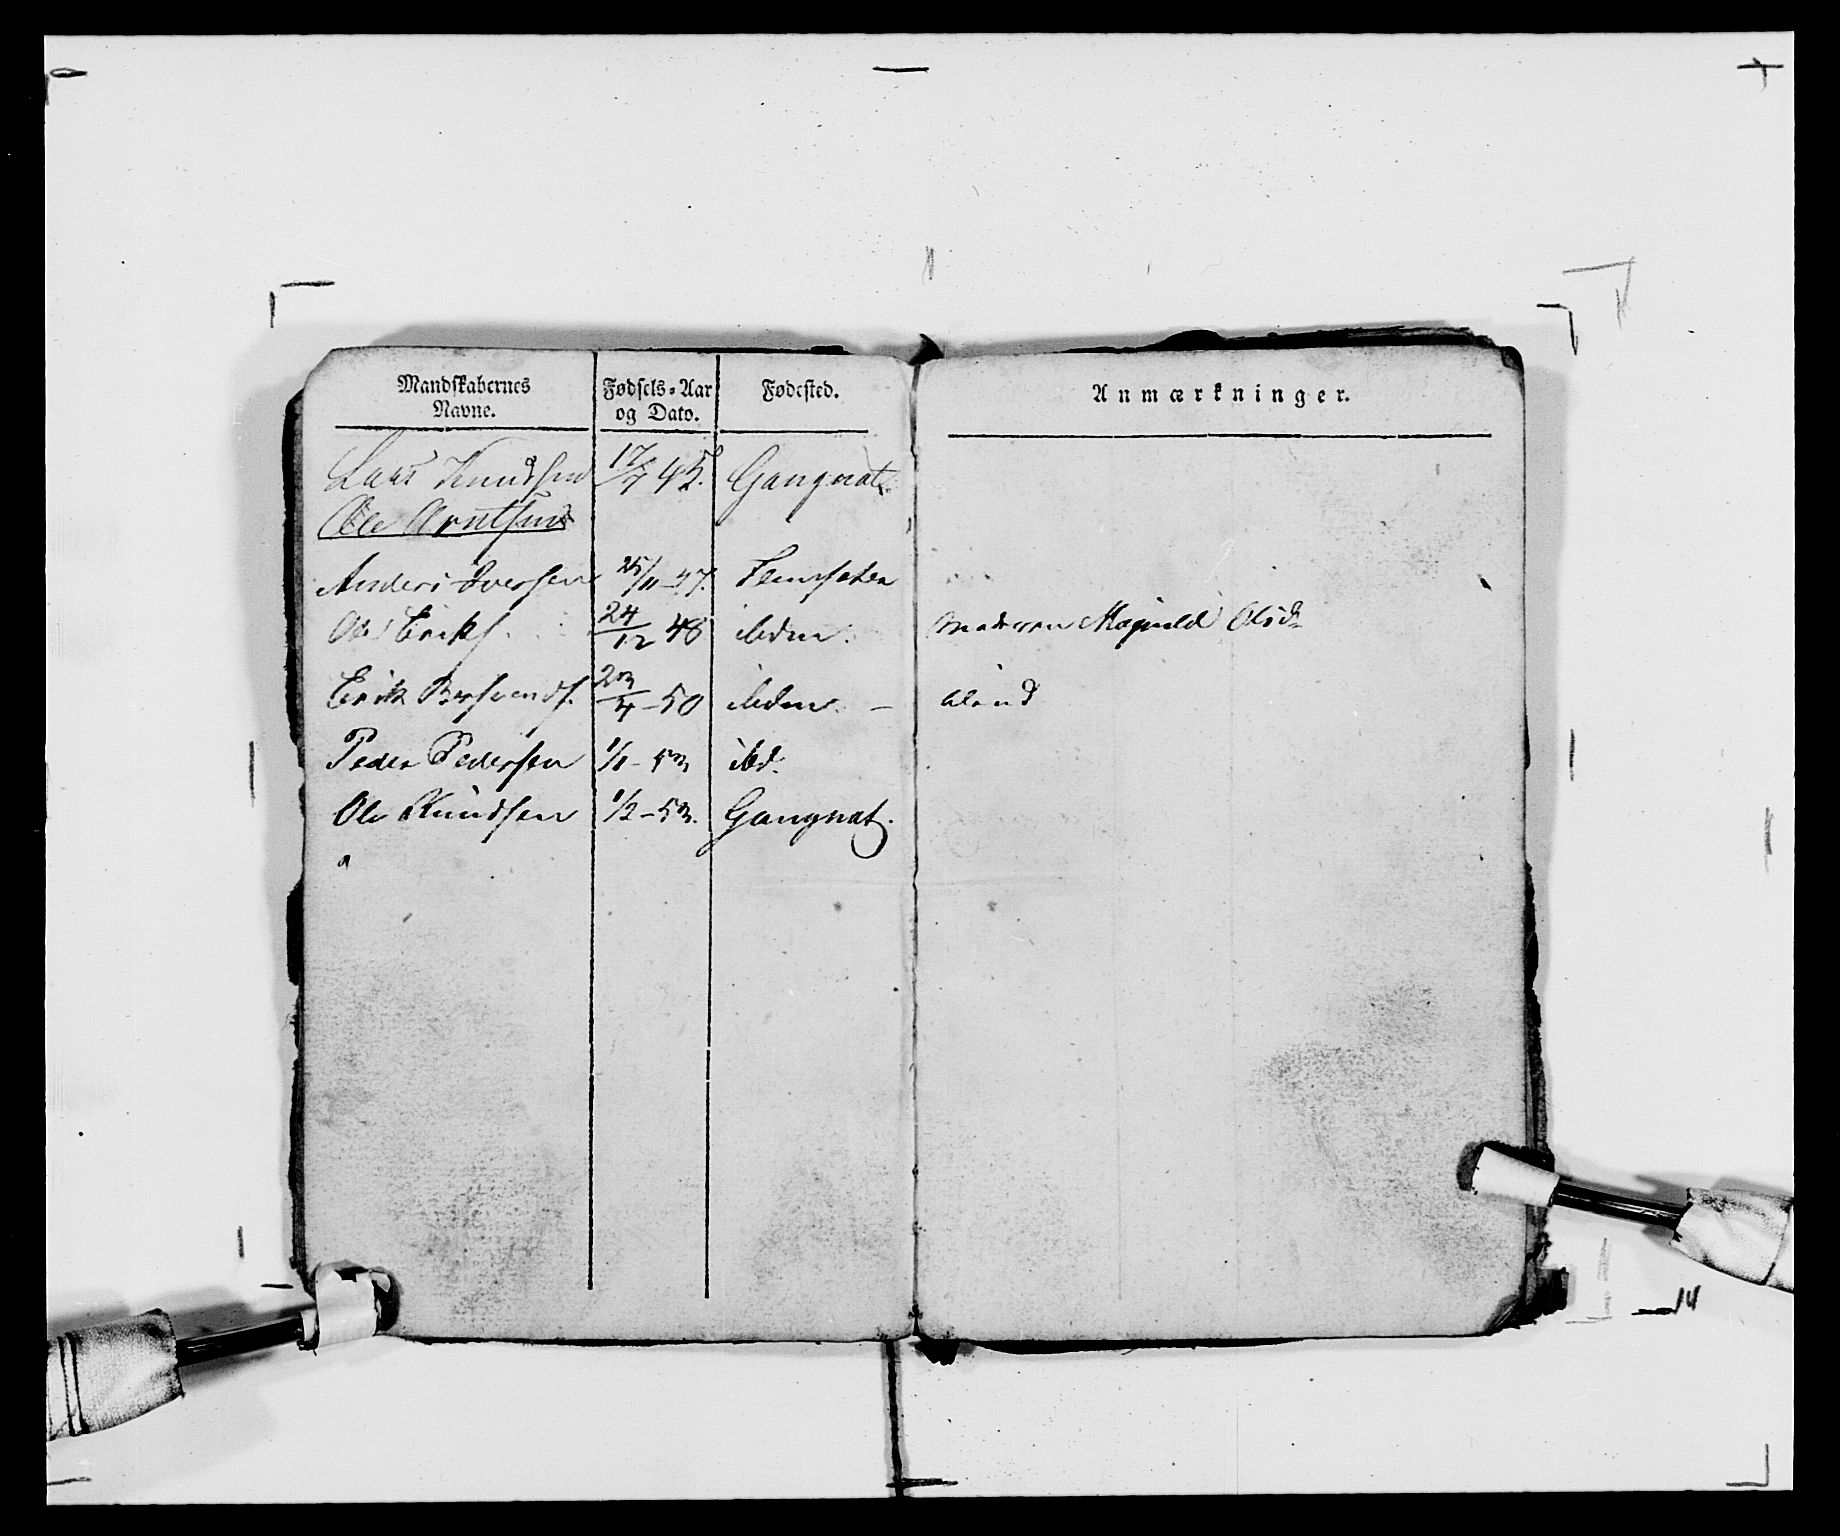 Mandskabernes
Navne.
Fødsels-Aar
og Dato.
Fødested.
Anmærkninger.
Lars Knudsen 17/7 45. Gangnat
Ole Arntsen
Anders Iversen 25/11-47.
Ole Eriks. 24/12 48 ibdm. Moderen Magnild Olsd.
Erik 23/4-50 ibdm. -
Peder Pedersen 1/1-53 ibd.
Ole Knudsen 1/2-53. Gangnat.
14